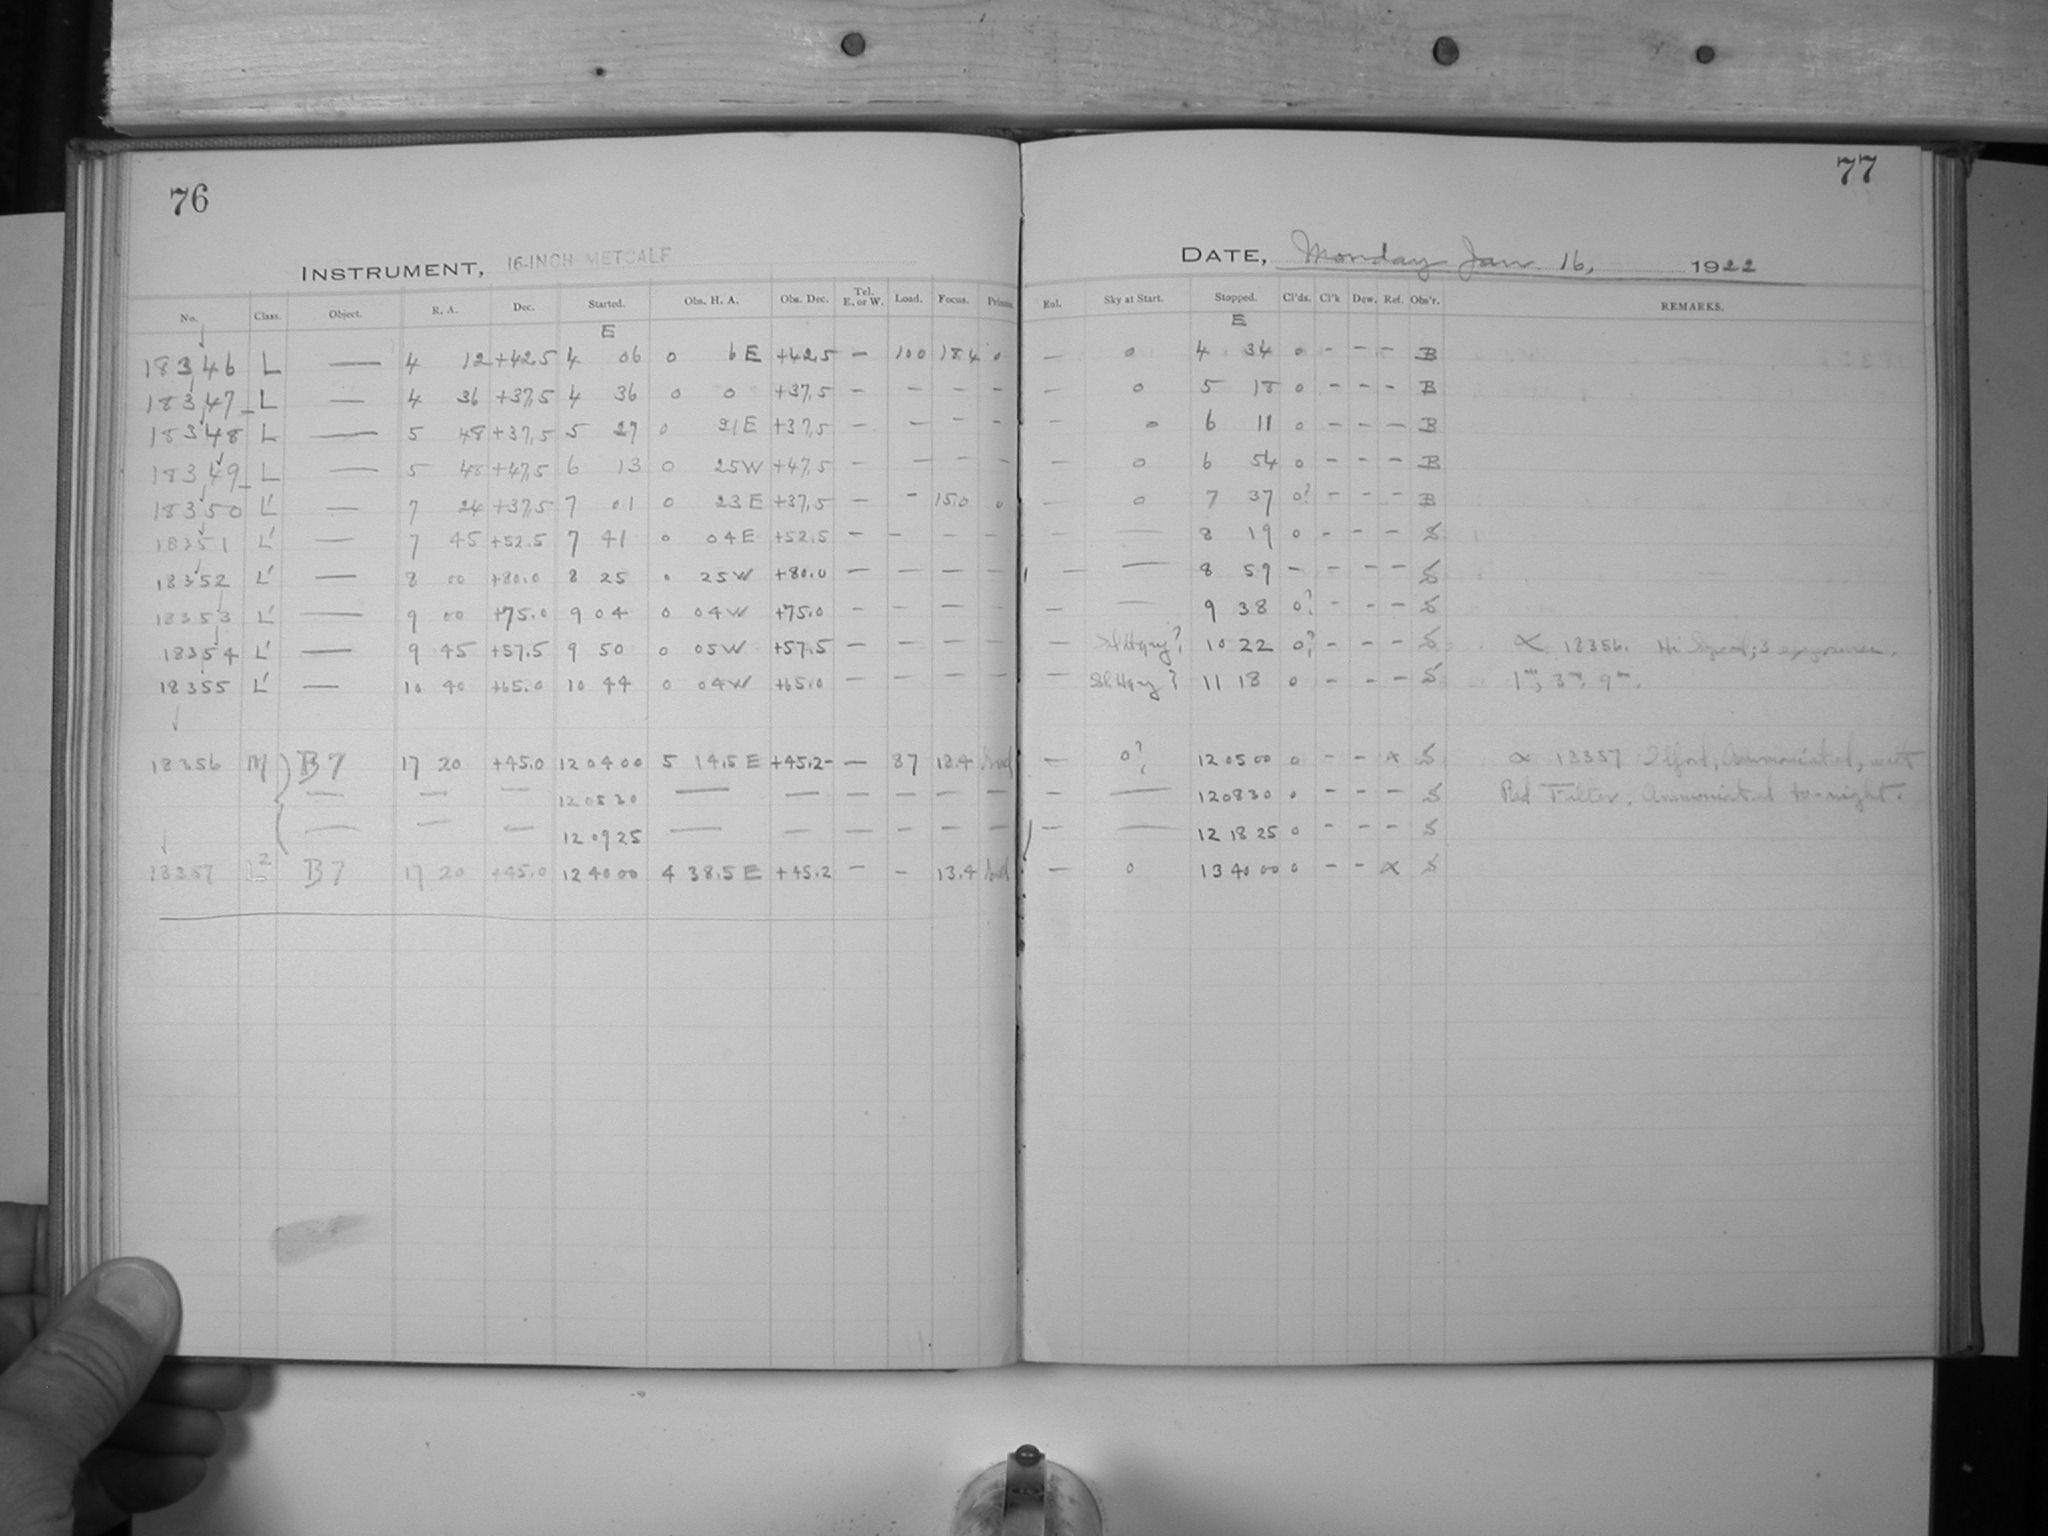 76
INSTRUMENT, 16-INCH METCALF
No. Class. Object. R. A. Dec. Started. Obs. H. A. Obs. Dec. Tel. E. or W. Load. Focus. Prism.
E
18346 L — 4 12 +42,5 4 06 0 6 E +42,5 — 100 18.4 0
18347 L — 4 36 +37,5 4 36 0 0 +37,5 — — — —
18348 L — 5 48 +37,5 5 27 0 21 E +37,5 — — — —
18349 L — 5 48 +47,5 6 13 0 25 W +47,5 — — — —
18350 L' — 7 24 +37,5 7 01 0 23 E +37,5 — — 15.0 0
18351 L' — 7 45 +52.5 7 41 0 04 E +52.5 — — — —
18352 L' — 8 00 +80.0 8 25 0 25 W +80.0 — — — —
18353 L' — 9 00 +75.0 9 04 0 04 W +75.0 — — — —
18354 L' — 9 45 +57.5 9 50 0 05 W +57.5 — — — —
18355 L' — 10 40 +65.0 10 44 0 04 W +65.0 — — — —
18356 M B7 17 20 +45.0 12 04 00 5 14.5 E +45.2 — 87 13.4
— — — 12 05 30 — — — — — —
— — — 12 09 25 — — — — — —
18357 L2 B7 17 20 +45.0 12 40 00 4 38.5 E +45.2 — — 13.4
77
DATE, Monday Jan. 16, 1922
Sky at Start. Stopped. Cl'ds. Cl'k Dew. Ref. Obs'r. REMARKS.
E
— 0 4 34 0 — — — B
— 0 5 18 0 — — — B
— 0 6 11 0 — — — B
— 0 6 54 0 — — — B
— 0 7 37 0? — — — B
— 8 19 0 — — — S
— — 8 59 — — — — S
— — 9 38 0? — — — S
— Sl Hazy? 10 22 0? — — — S ∝ 18356. Hi Speed; 3 exposures.
— Sl. Hazy? 11 18 0 — — — S 1m, 3m, 9m.
— 0? 12 05 00 0 — — ∝ S ∝ 18357 Ilford, Ammoniated, with
— — 12 08 30 0 — — — S Red Filter. Ammoniated to-night.
— — 12 18 25 0 — — — S
— 0 13 40 00 0 — — ∝ S